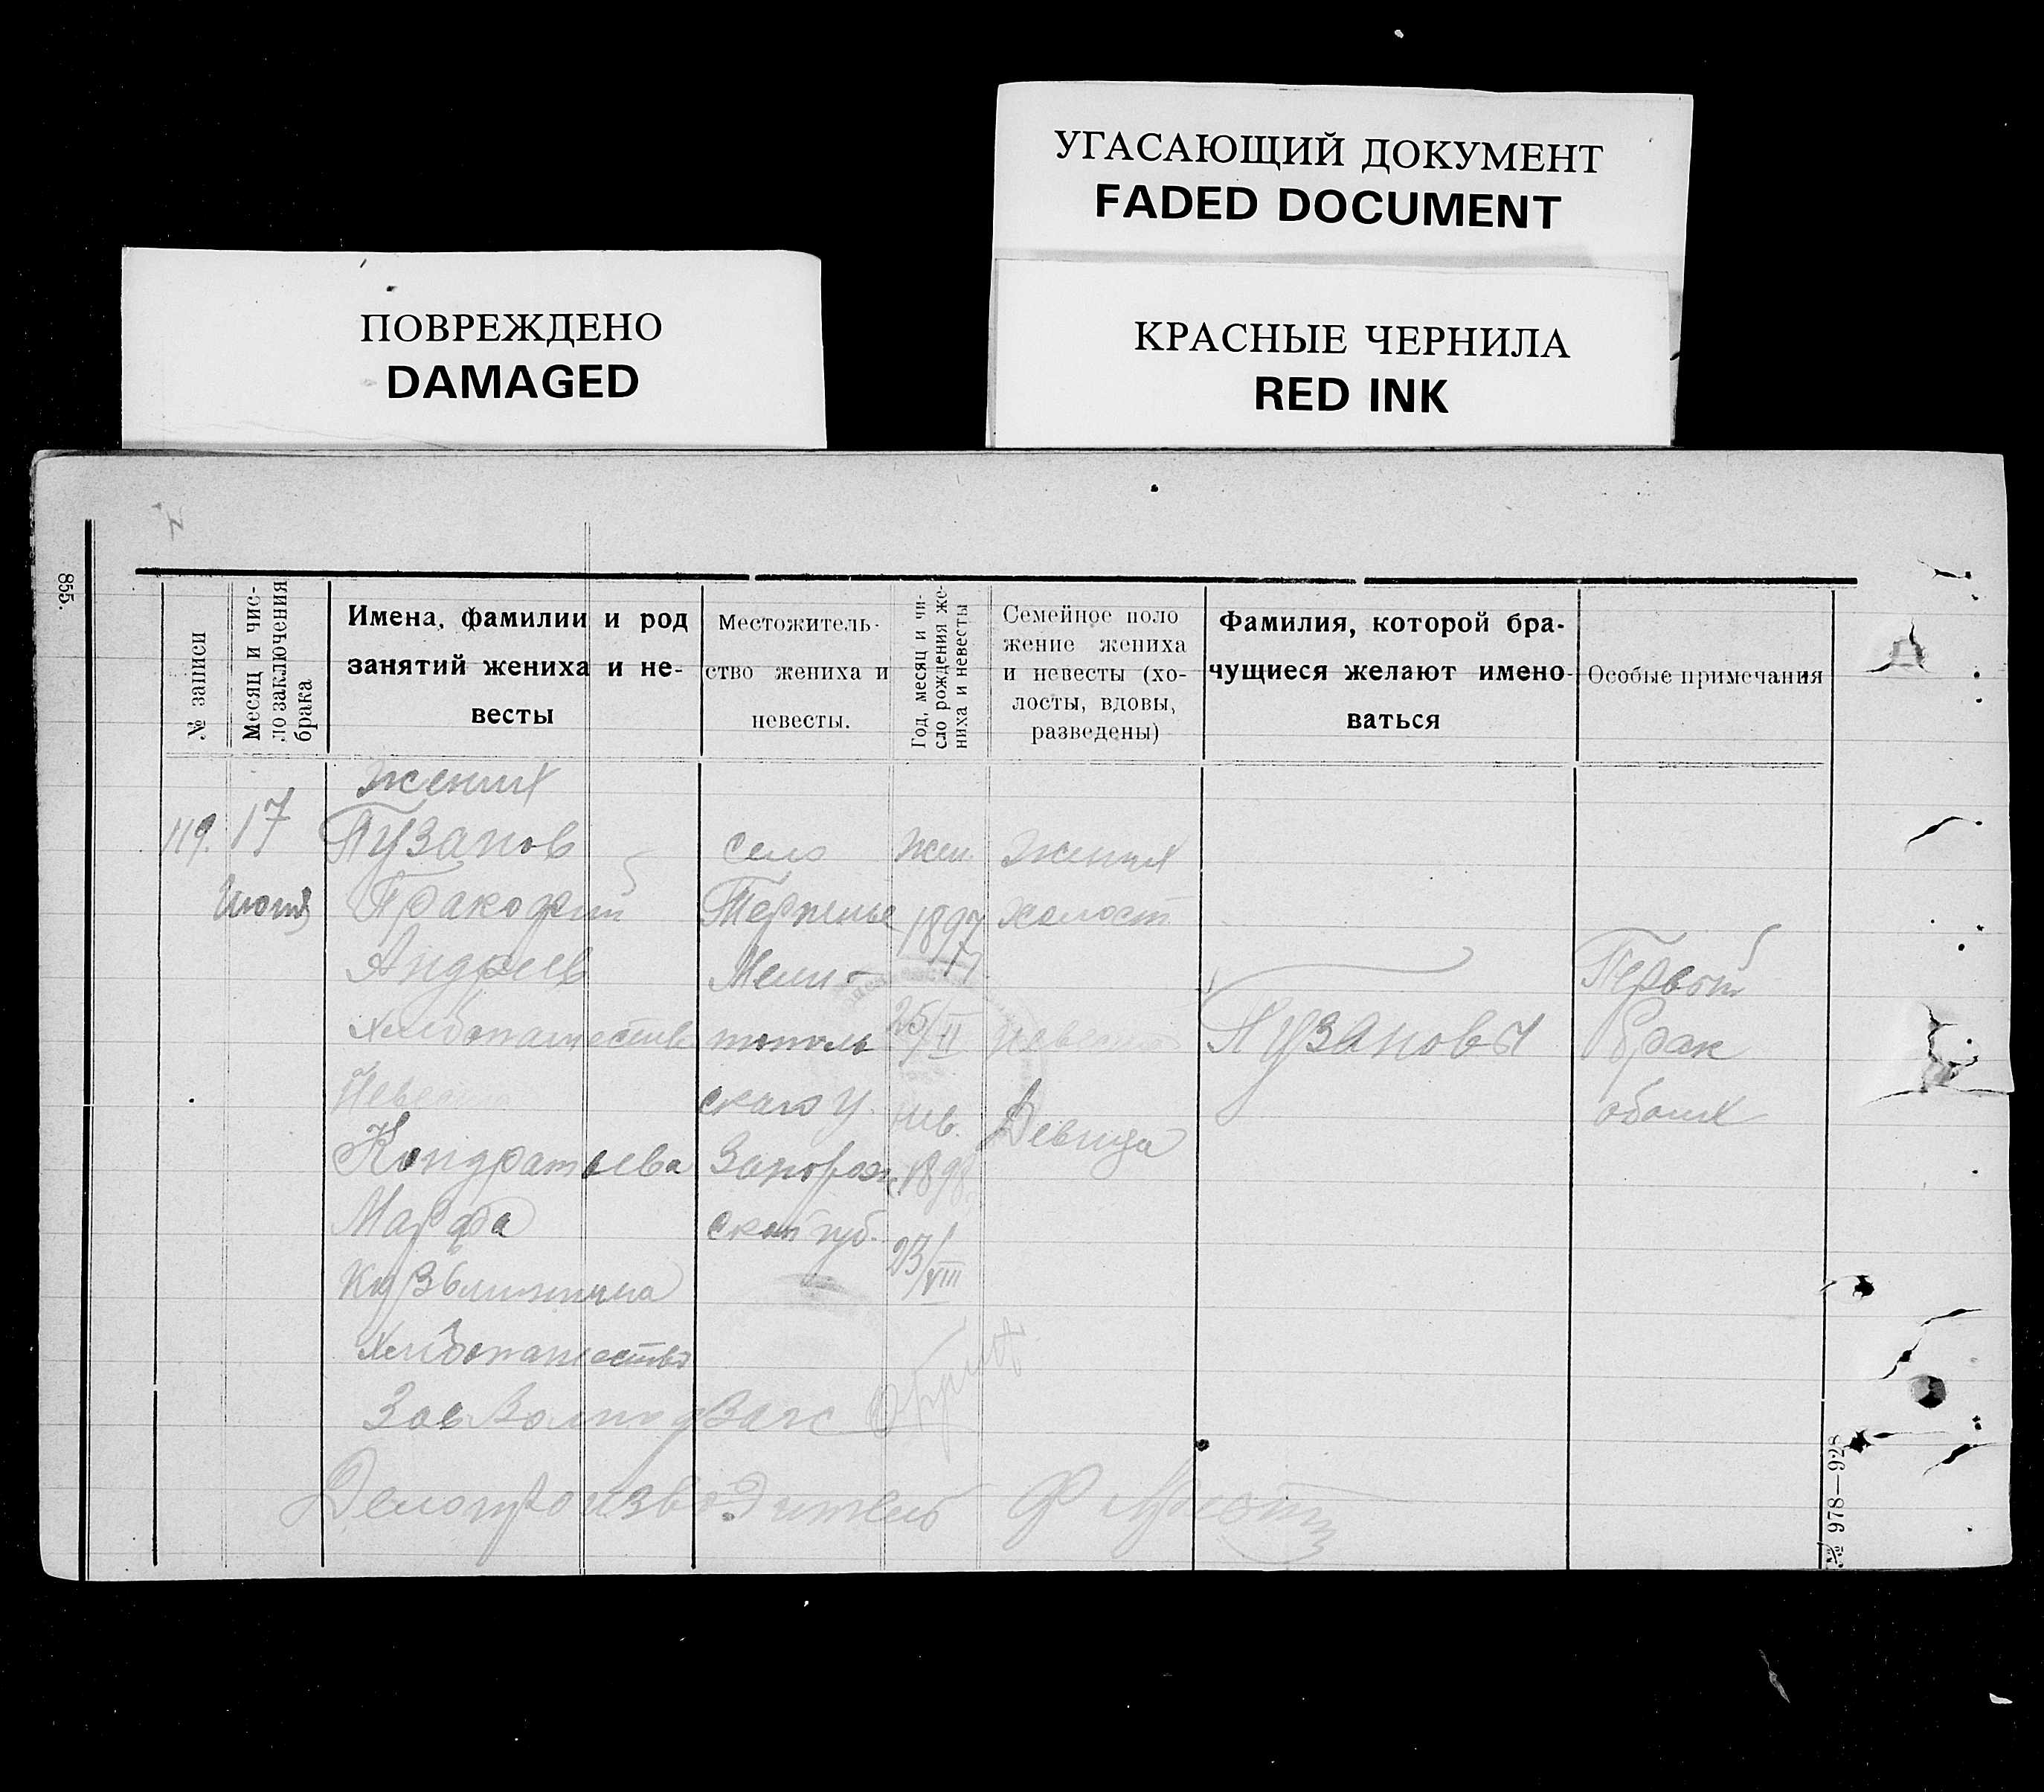 УГАСАЮЩИЙ ДОКУМЕНТ
FADED DOCUMENT
ПОВРЕЖДЕНО
DAMAGED
КРАСНЫЕ ЧЕРНИЛА
RED INK
855.
№ записи
Месяц и чис-
ло заключения
брака
Имена, фамилии и род
занятий жениха и не-
весты
Местожитель-
ство жениха и
невесты.
Год, месяц и чи-
сло рождения же-
ниха и невесты
Семейное поло
жение жениха
и невесты (хо-
лосты, вдовы,
разведены)
Фамилия, которой бра-
чущиеся желают имено-
ваться
Особые примечания
119.
17
Июня
Жених
Пузанов
Пракофий
Андреев
Хлебопашеств
Невеста
Кондратьева
Марфа
Кузьминична
Хлебопашество
село
Терпенье
Мели-
тополь
скаго у.
Запорож
ской губ.
Жен.
1897
25/II
Нев.
1898
23/VIII
Жених
холост
Невеста
Девица
Пузановы
Первый
брак
обоих
Зав
Делопроизводитель
№ 978—928